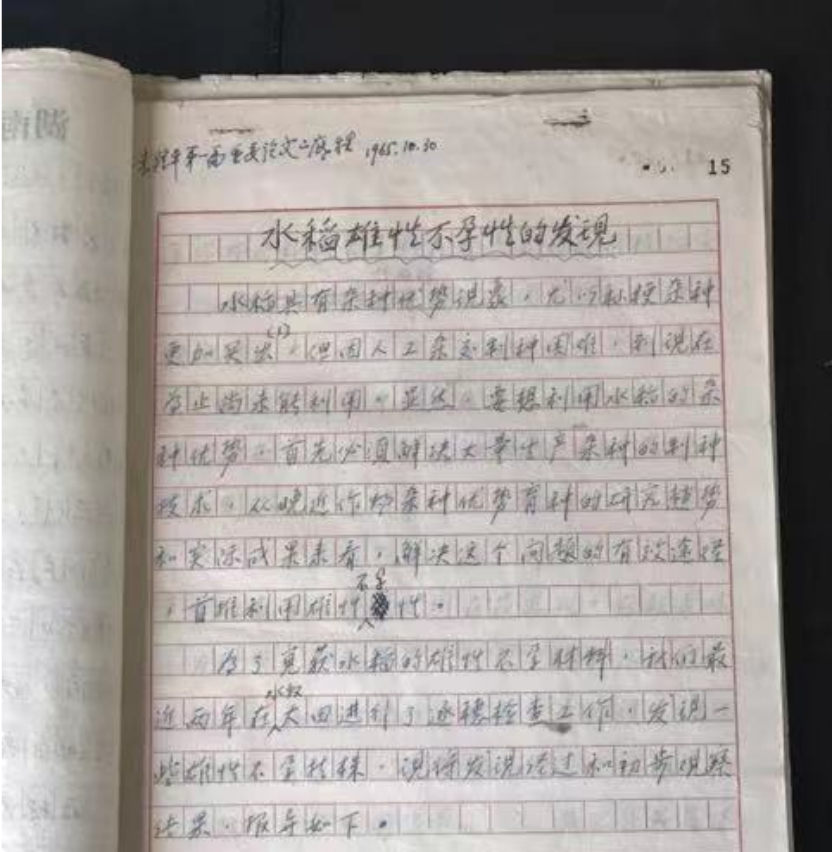 袁隆平第一篇重要论文之底稿 1965.10.30
15
水稻雄性不孕性的发现
水稻具有杂种优势现象，尤以籼粳杂种
更加突出(1)，但因人工杂交制种困难，到现在
为止尚未能利用。显然，要想利用水稻的杂
种优势，首先必须解决大量生产杂种的制种
技术，从晚近作物杂种优势育种的研究趋势
和实际成果来看，解决这个问题的有效途径
，首推利用雄性不孕性。
为了克获水稻的雄性不孕材料，我们最
近两年在水稻大田进行了逐穗检查工作，发现一
些雄性不孕植株，现将发现经过和初步观察
结果，报导如下。